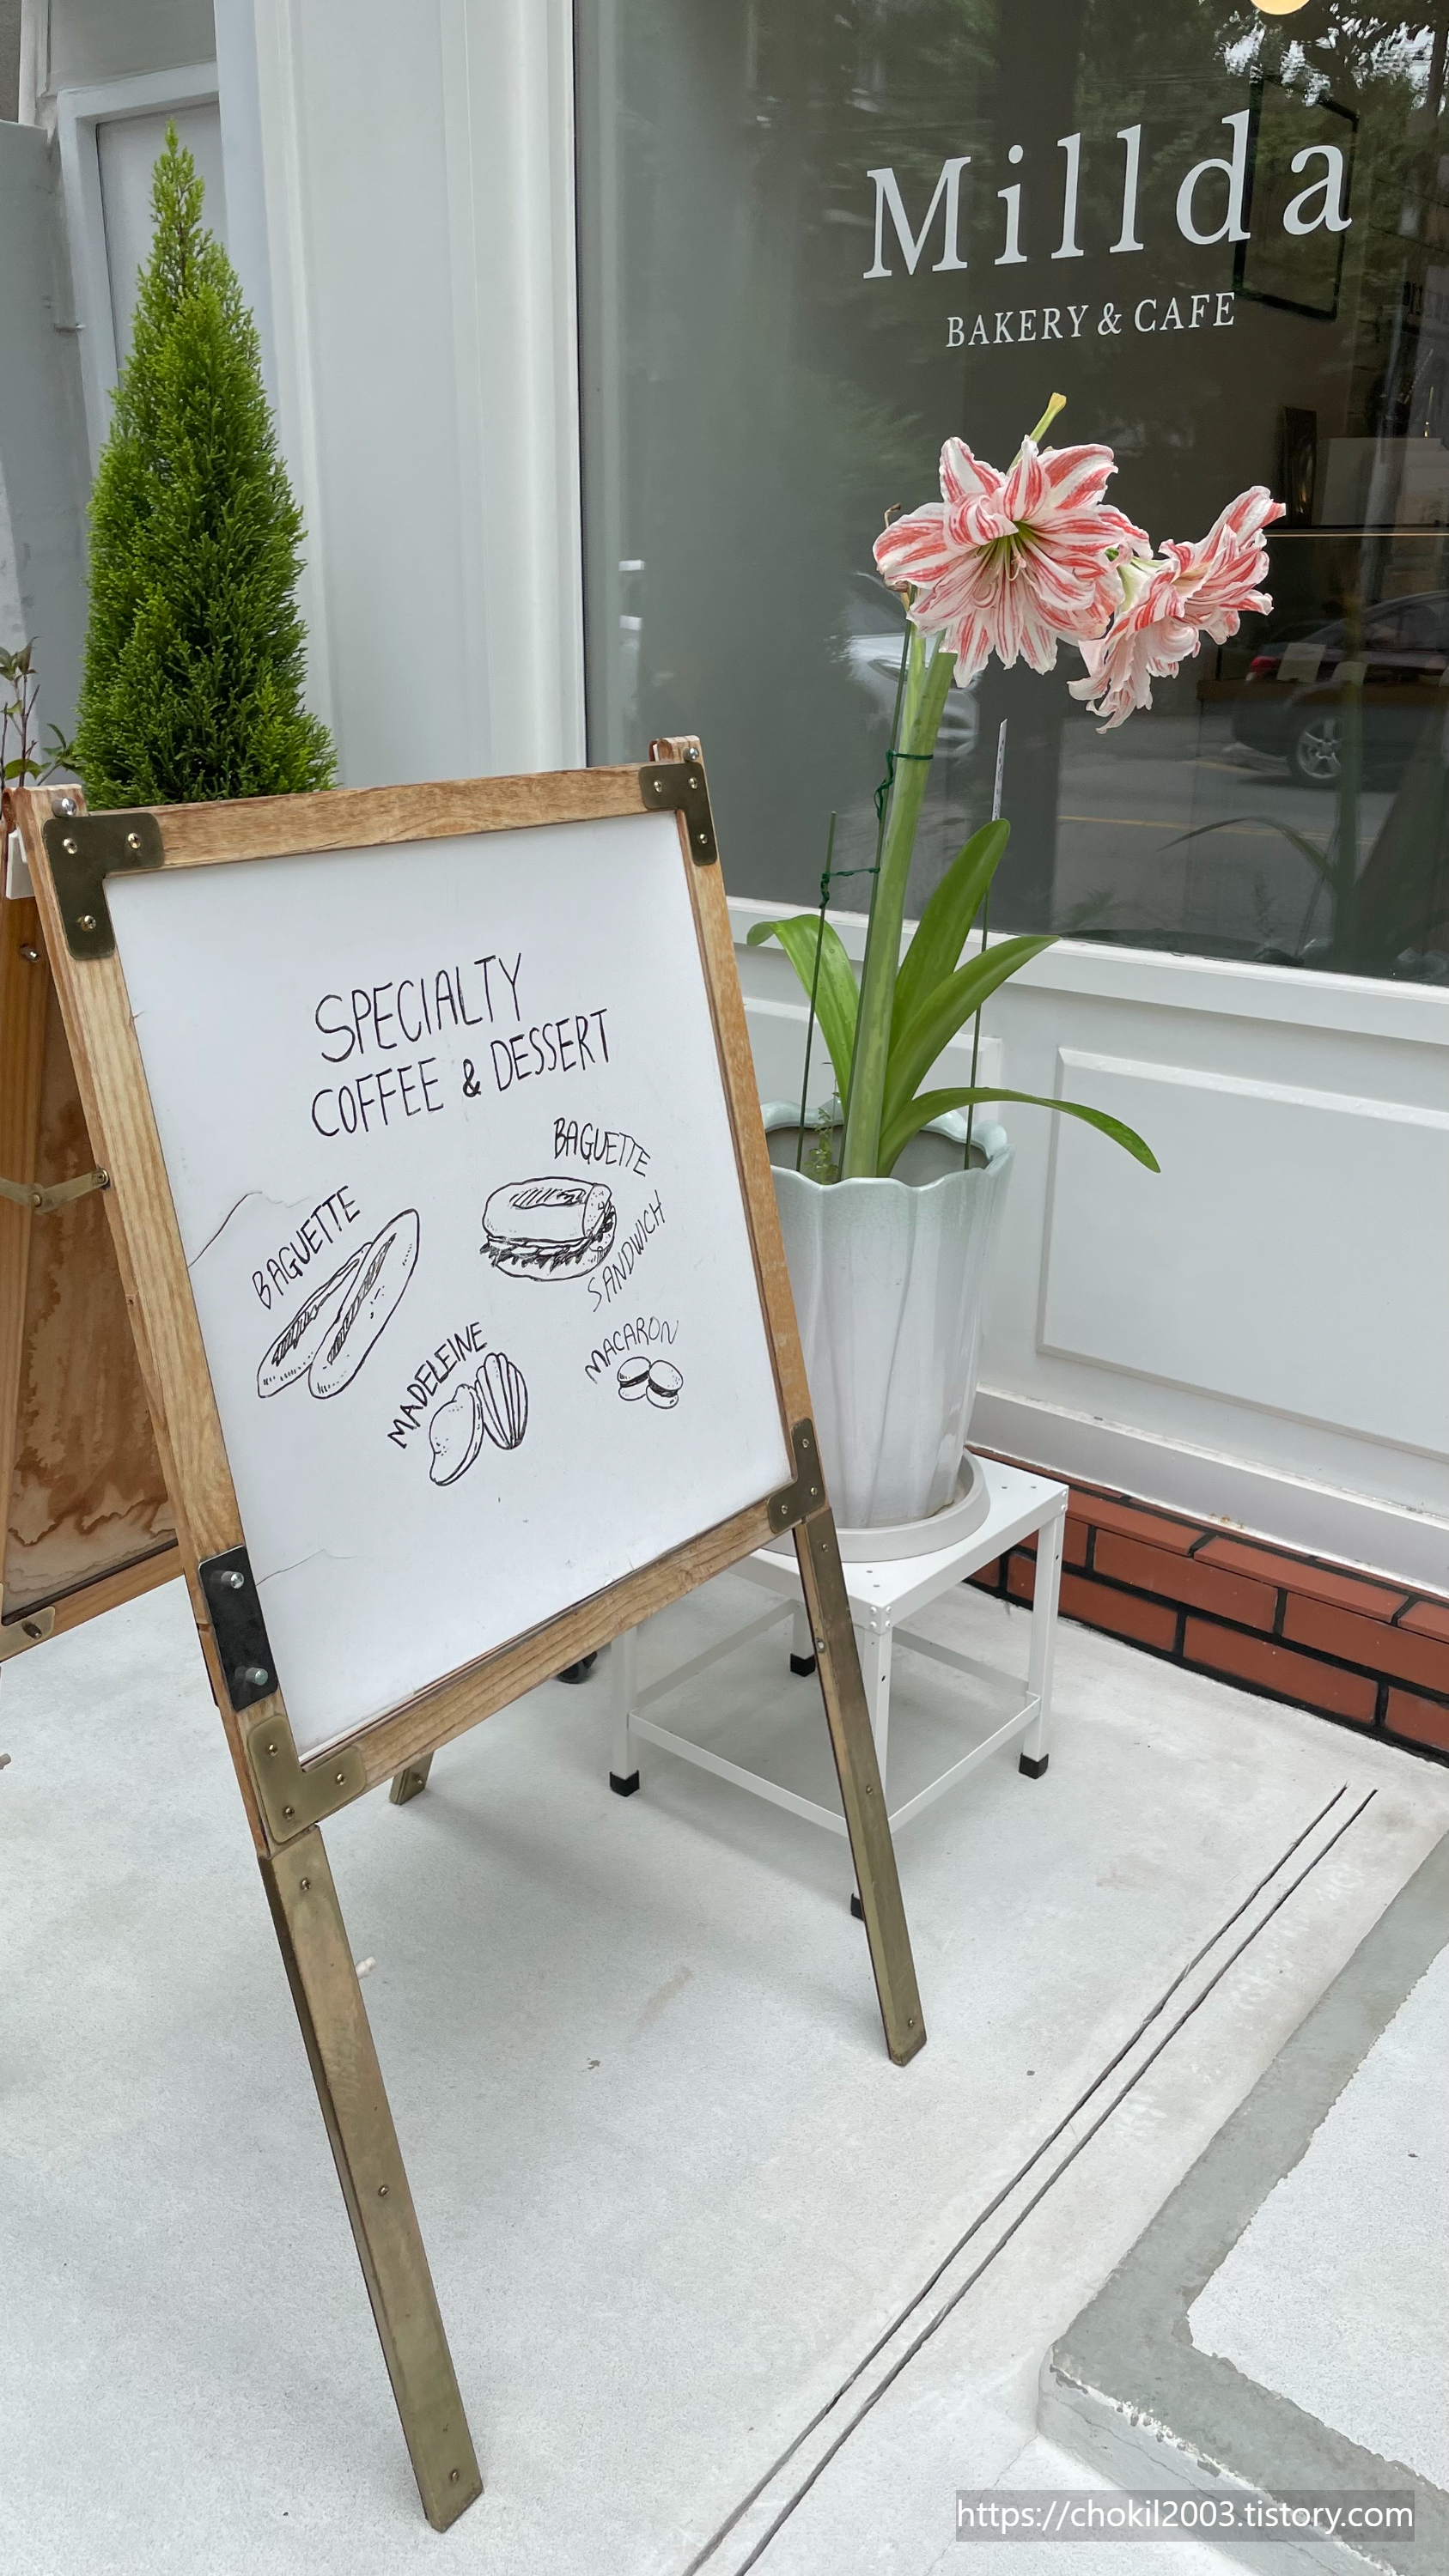 Millda
BAKERY & CAFE
SPECIALTY
COFFEE & DESSERT
BAGUETTE
SANDWICH
BAGUETTE
MADELEINE
MACARON
https://chokil2003.tistory.com